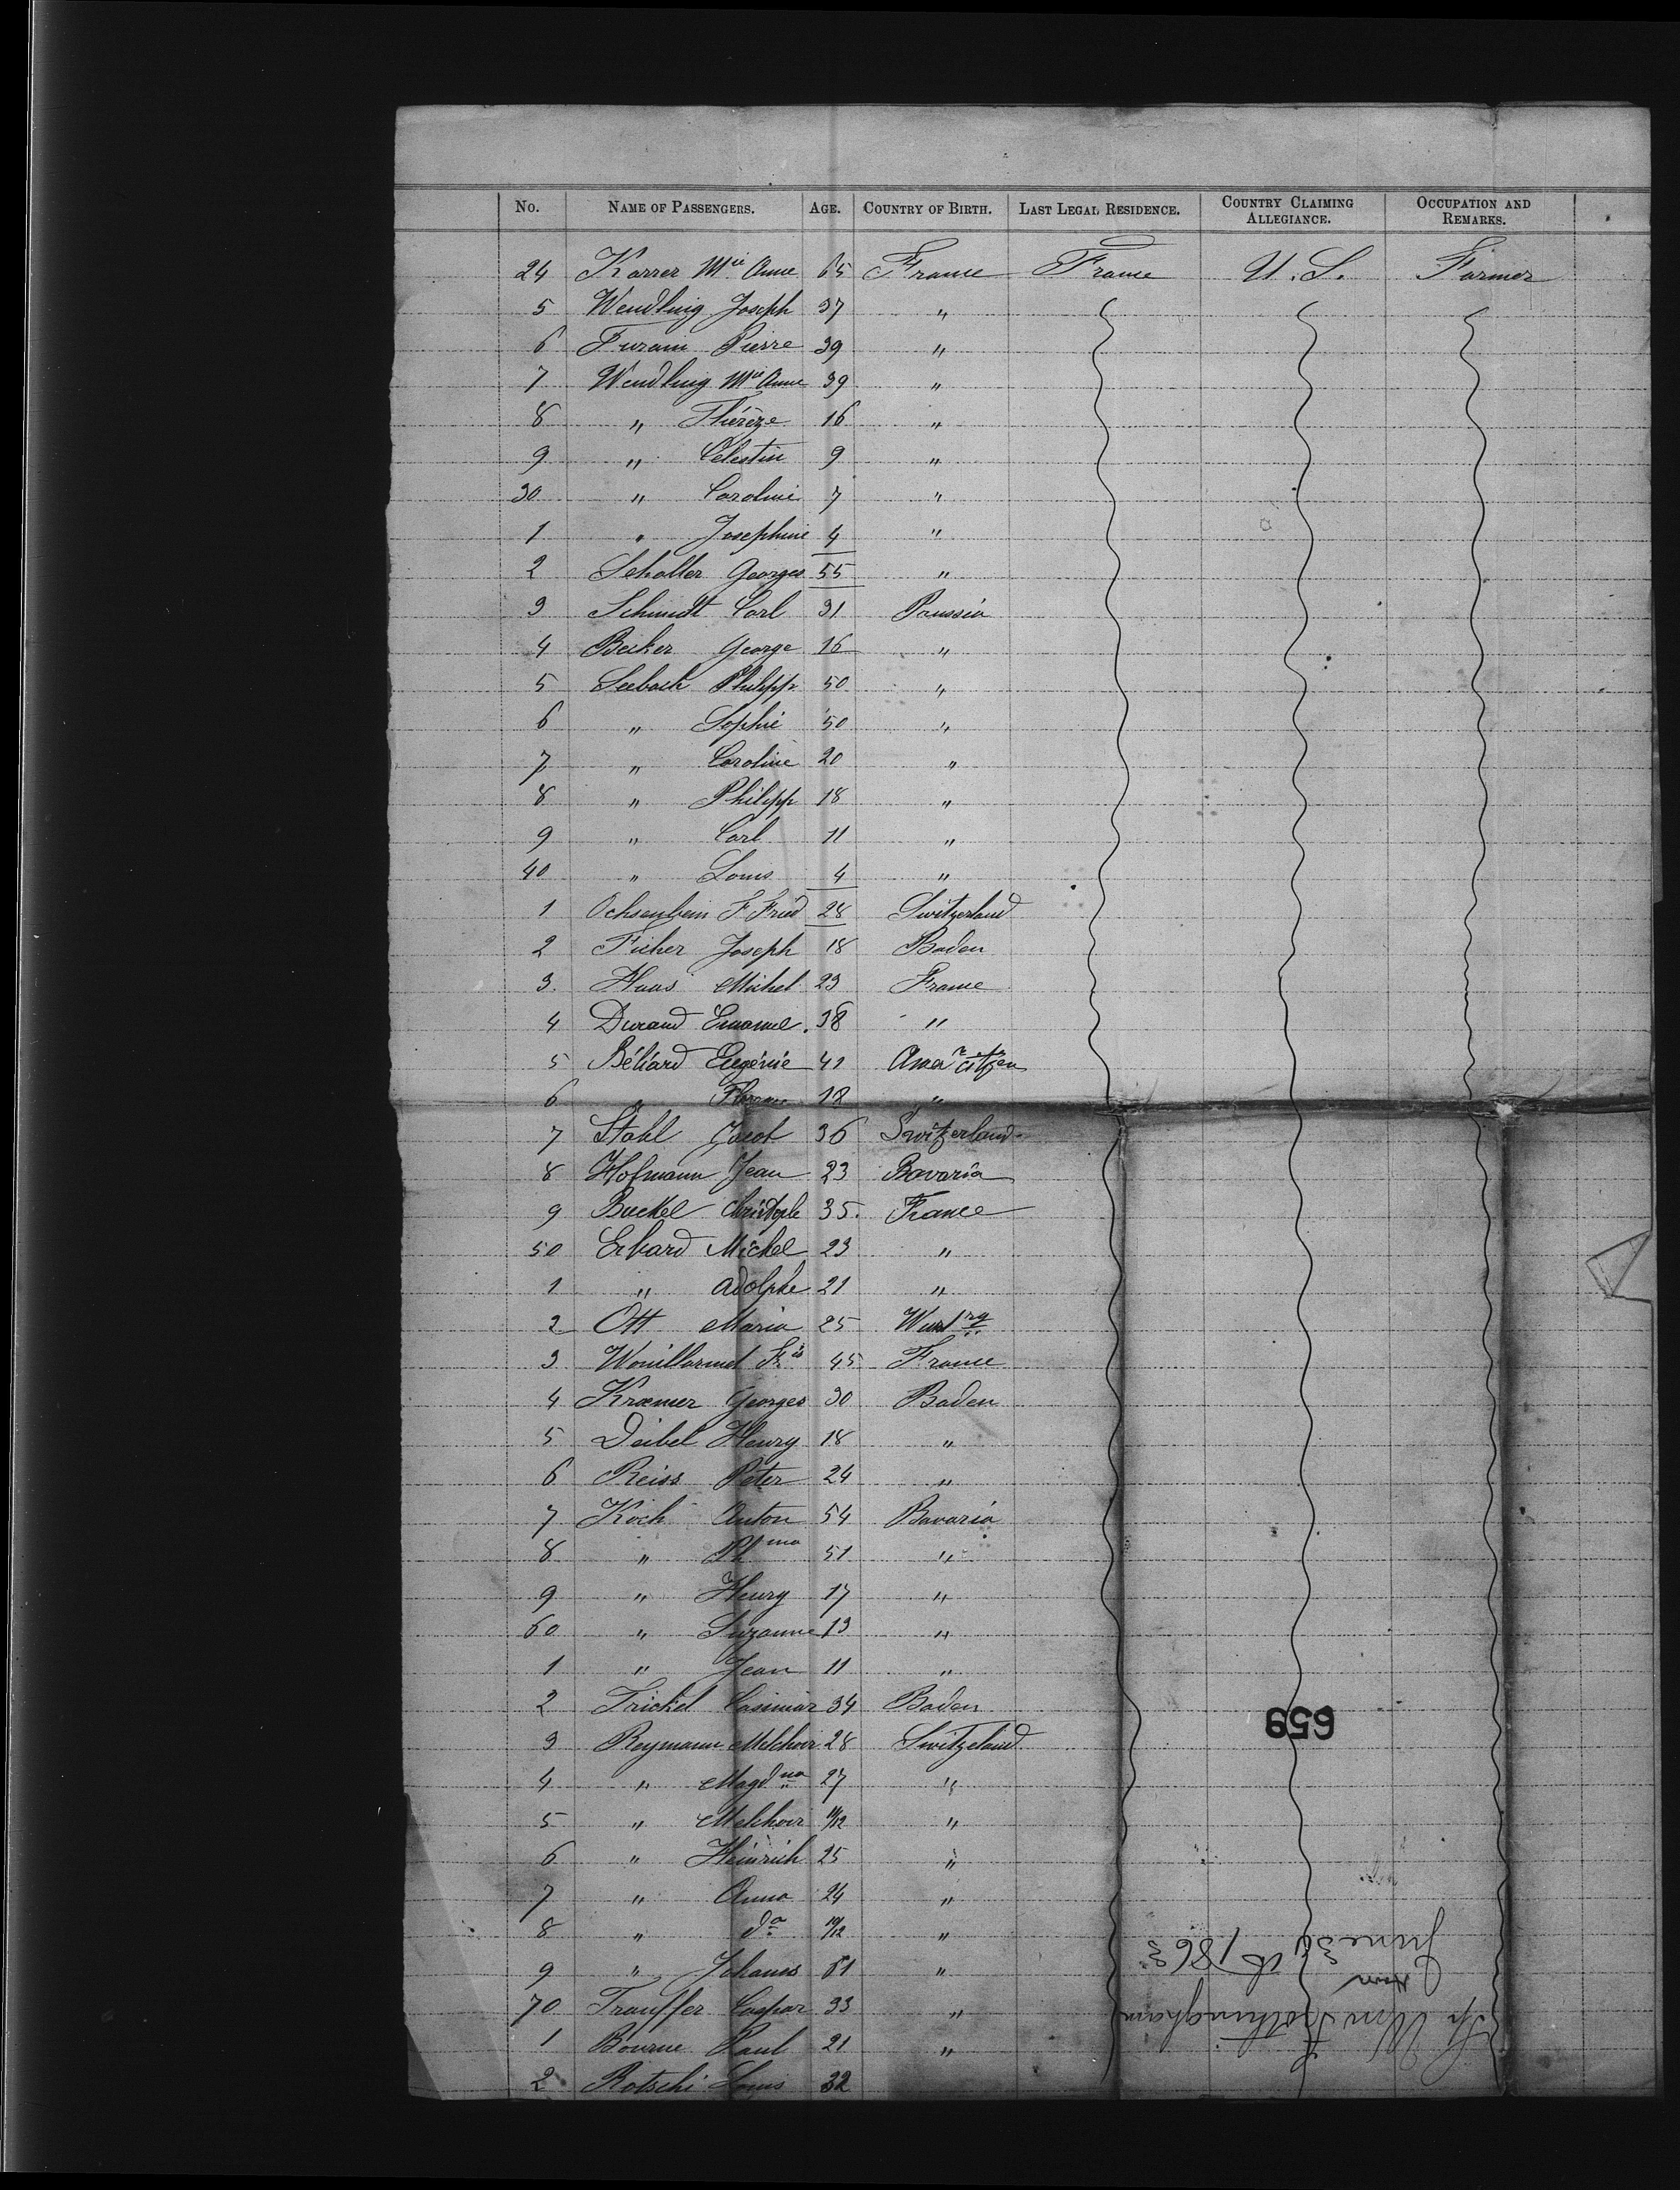 No. NAME OF PASSENGERS. AGE. COUNTRY OF BIRTH. LAST LEGAL RESIDENCE. COUNTRY CLAIMING ALLEGIANCE. OCCUPATION AND REMARKS.
24 Karrer Mie Anne 65 France France U.S. Farmer
5 Wendling Joseph 37 "
6 Furam Pierre 39 "
7 Wendling Mie Anne 39 "
8 " Thérèze 16 "
9 " Celestin 9 "
30 " Caroline 7 "
1 " Josephine 4 "
2 Schaller Georges 55 "
3 Schmidt Carl 31 Prussia
4 Becker George 16 "
5 Seebach Philipp 50 "
6 " Sophie 50 "
7 " Caroline 20 "
8 " Philipp 18 "
9 " Carl 11 "
40 " Louis 4 "
1 Ochsenbein F. Fried 28 Switzerland
2 Ficher Joseph 18 Baden
3. Haas Michel 23 France
4 Durand Emanuel. 38 "
5 Béliard Eugénie 41 Amen citizen
6 " 18 "
7 Stahl Jacob 36 Switzerland
8 Hofmann Jean 23 Bavaria
9 Buckel Christople 35. France
50 Erhard Michel 23 "
1 " Adolphe 21 "
2 Ott Maria 25 Wurtrg
3 Wouillarmet Frs 45 France
4 Kraemer Georges 30 Baden
5 Deibel Henry 18 "
6 Reiss Peter 24 "
7 Koch Anton 54 Bavaria
8 " Phma 51 "
9 " Henry 17 "
60 " Suzanne 13 "
1 " Jean 11 "
2 Trickel Casimir 34 Baden
3 Reymann Melchoir 28 Switzeland
4 " Magdna 27 "
5 " Melchoir 11/12 "
6 " Heinrich 25 "
7 " Anna 24 "
8 " do 10/12 "
9 " Johanes 61 "
70 Trauffer Caspar 33 "
1 Bourne Paul 21 "
2 Rotschi Louis 32
659
Sp Wm Frothingham
June 30 1863